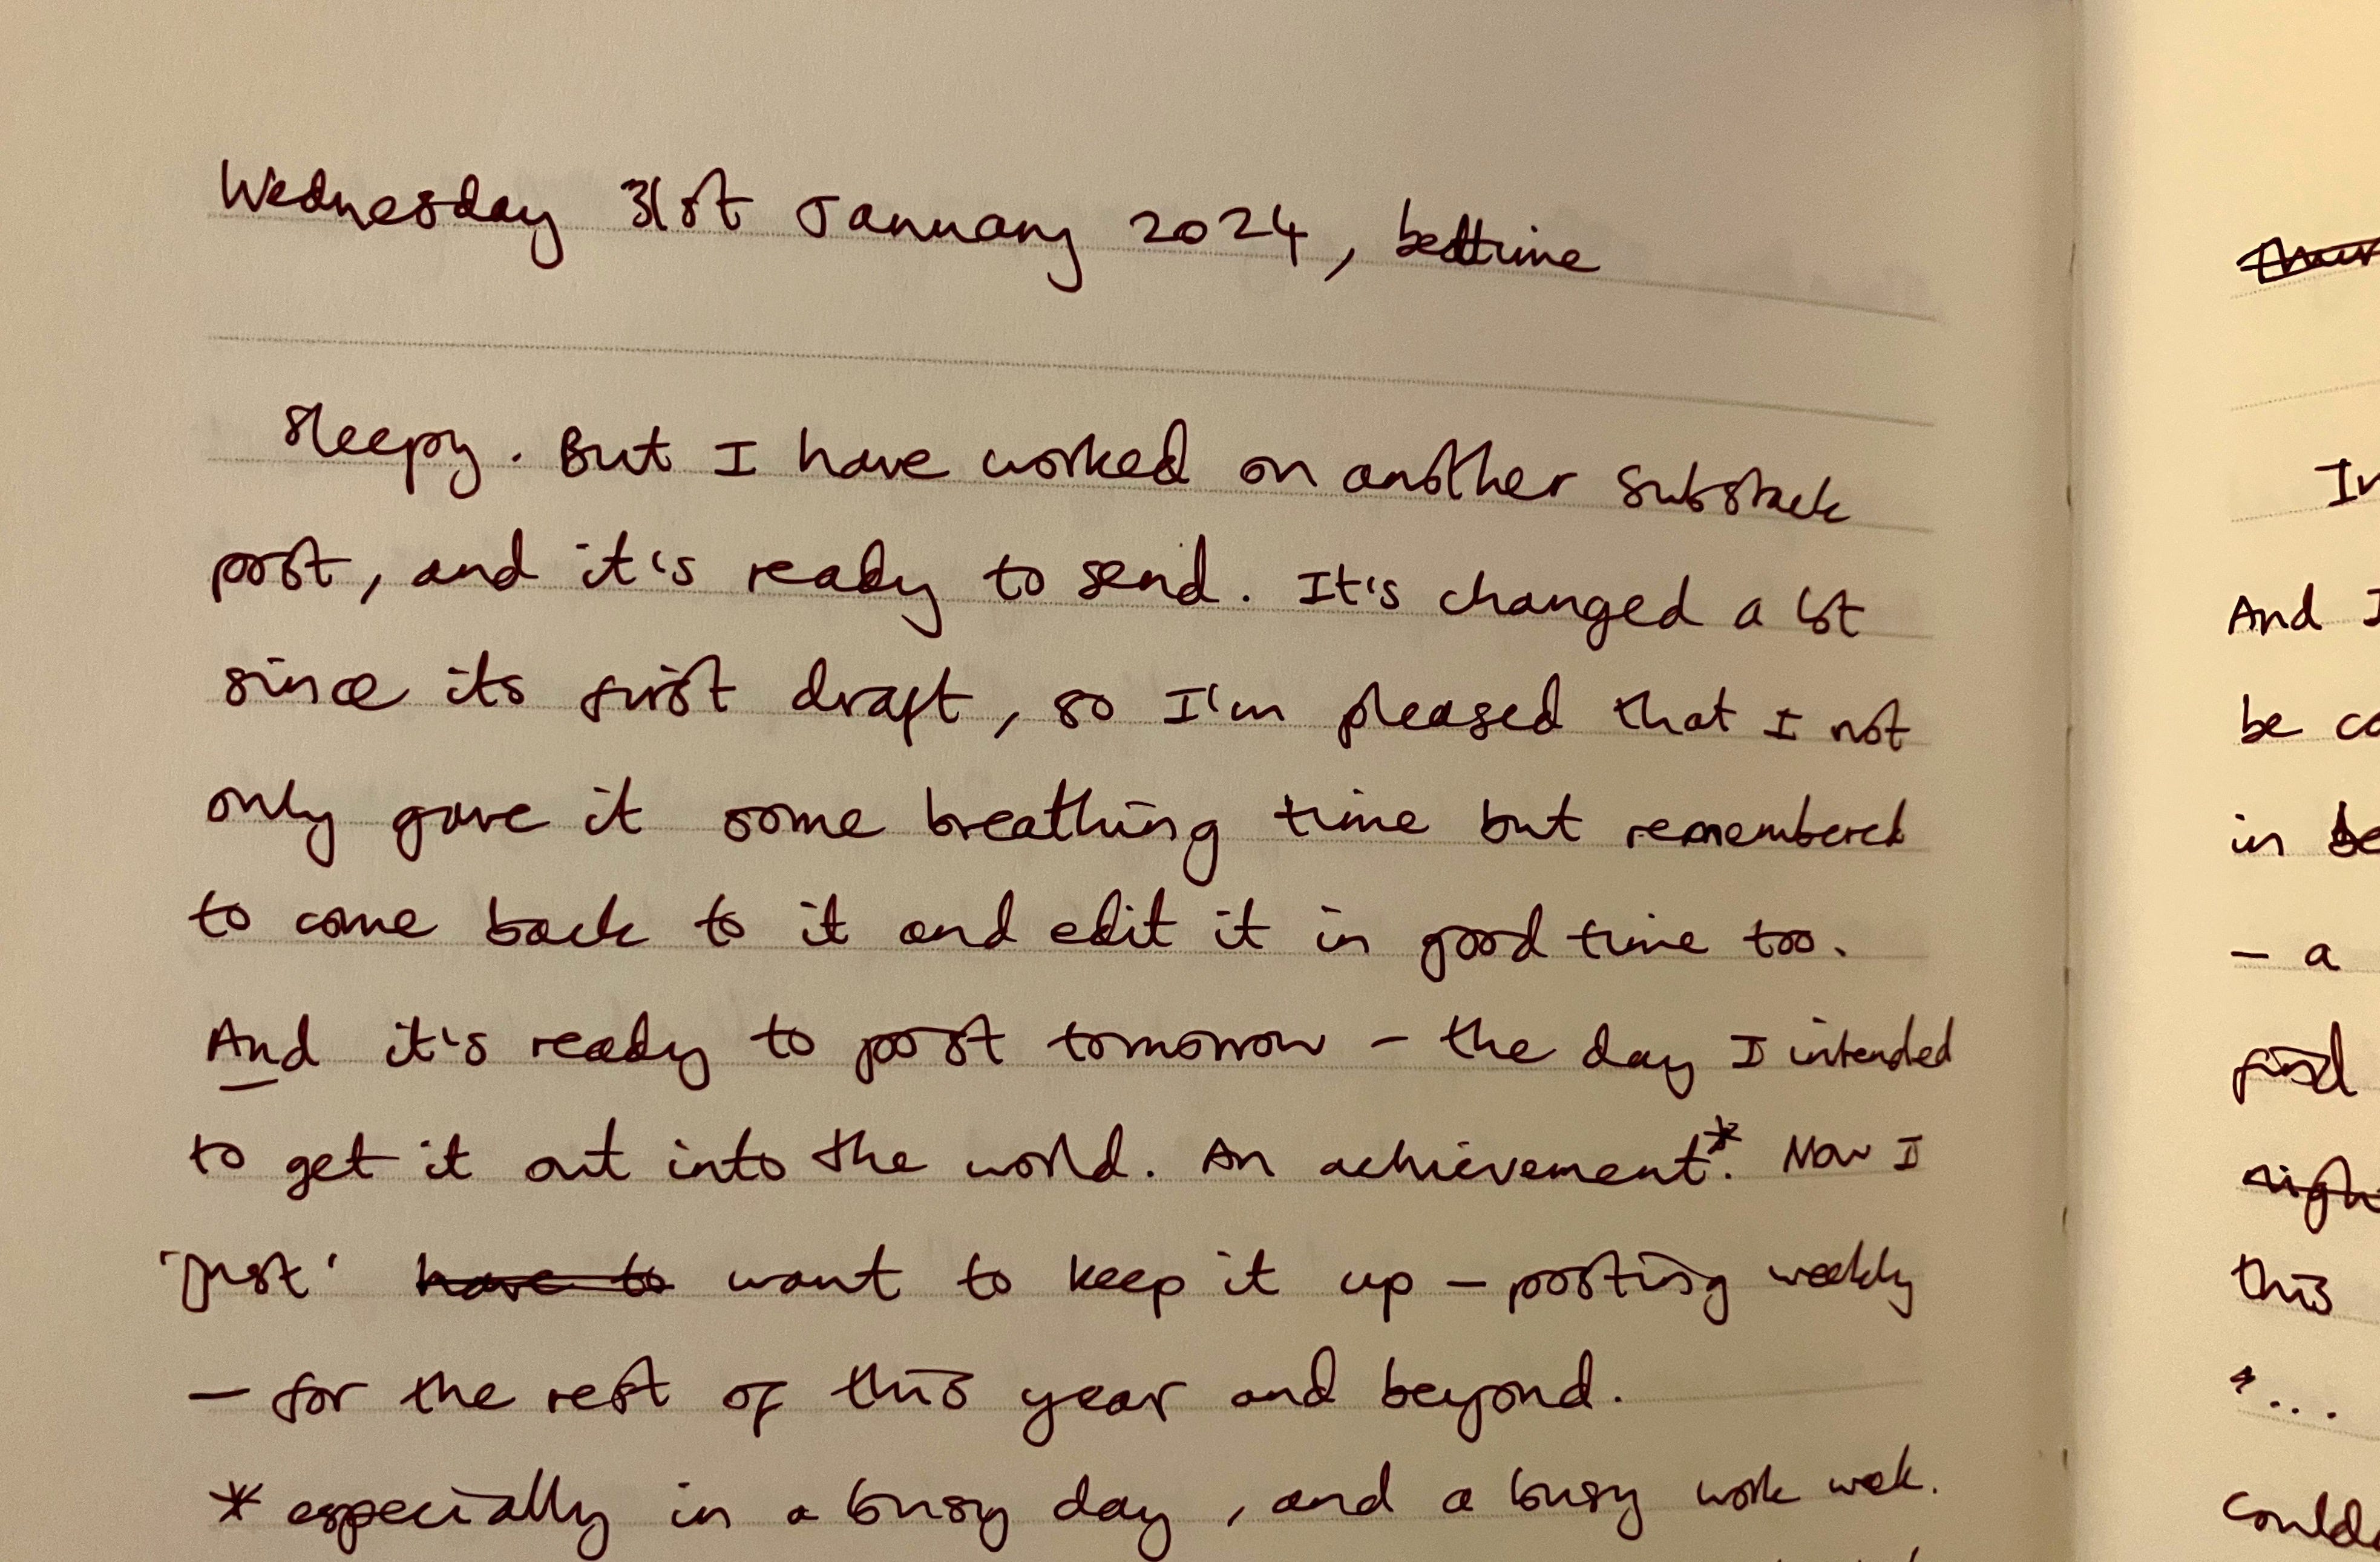 Wednesday 31st January 2024, bedtime
Sleepy. But I have worked on another Substack
post, and it's ready to send. It's changed a lot
since its first draft, so I'm pleased that I not
only gave it some breathing time but remembered
to come back to it and edit it in good time too.
And it's ready to post tomorrow – the day I intended
to get it out into the world. An achievement*. Now I
'just' have to want to keep it up – posting weekly
– for the rest of this year and beyond.
* especially in a busy day, and a busy work week.
And I
be
in
– a
find
this
*...